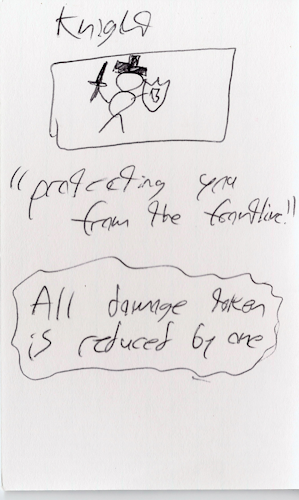 Knight
B
"protecting you
from the frontline!"
All damage taken
is reduced by one